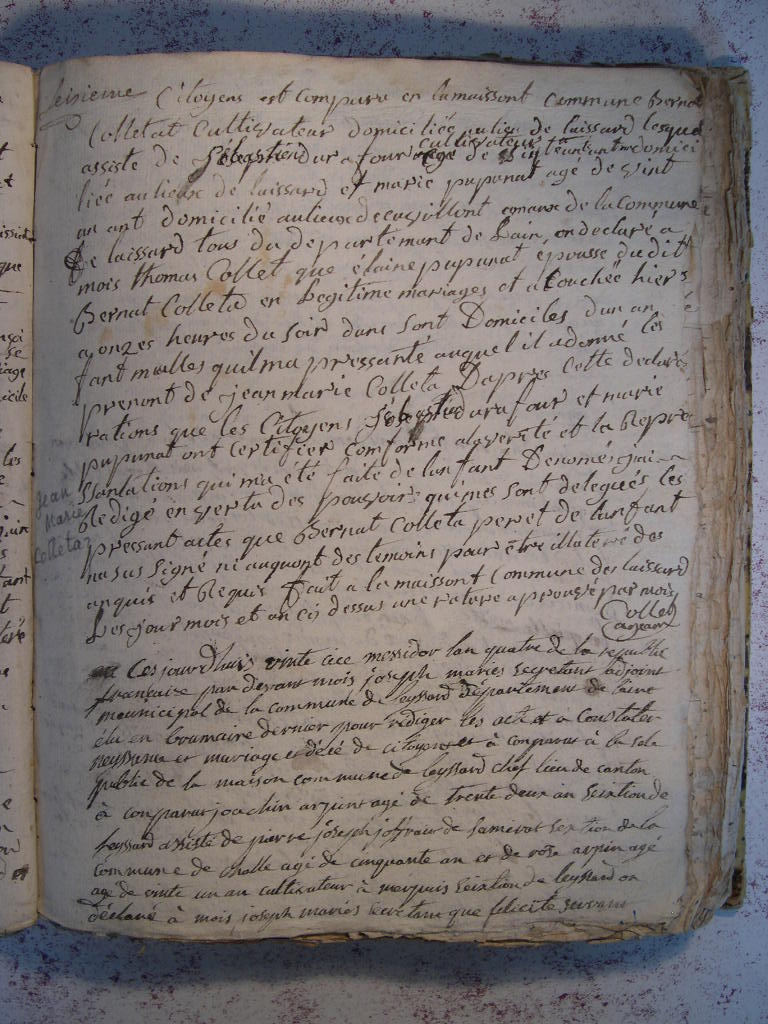 Citoyens est Compuru en lamaissont Commune Bernat
Colletat Cultivateur domiciliée aulieu de laissard lesquel
assiste de Sébastien durafour cultivateur age de domici
liée aulieux de laissard et marie pupunat agé de vint
un ant domicilié aulieux de cuvillont de la Commune
De laissard tous du departemant de Lain, on declaré a
mois thomas Collet que élaine pupunat épousse du dit
Bernat Colleta en Legitime mariages et a Couchée hier
a onzes heures du soir dans sont Domiciles dun an
fant malles quil ma pressanté auquel il a donné les
prenont de jean marie Colleta Dapres Cette declaré
rations que les Citoyens Sébastien durafour et marie
pupunat ont Certifier Comforme a la verité et la Repre
ssantations qui ma eté faite de lanfant Denomés jai
Redigé en vertu des pouvoir qui mes sont delegués les
pressant actes que Bernat Colleta peret de lanfant
na sus signé ni auquont des temoins pour être illatére des
anquis et Requis fait a la maissont Commune des laissard
Les jour mois et an cy dessus une rature aprouvé par mois
Collet
Jean
Marie
Colleta
Cesjourdhuis vinte cice messidor lan quatre de la republi
française par devant mois joseph maries secretant adjoint
meunicipal de la commune de leyssard département de laint
élu en brumaire dernier pour rediger les acte et a Constater
neyssance et mariage et décé de citoyens et à comparut à la sale
publie de la maison commune de leyssard chef lieu de canton
à comparut joachin arpint agé de trente deux an section de
leyssard assisté de pierre joseph joffraix de Samerat section de la
commune de challe agé de cinquante an et de rose arpin agé
age de vinte un an cultivateur à merpuis section de leyssard on
déclaré à mois joseph maries secretant que félicité servant